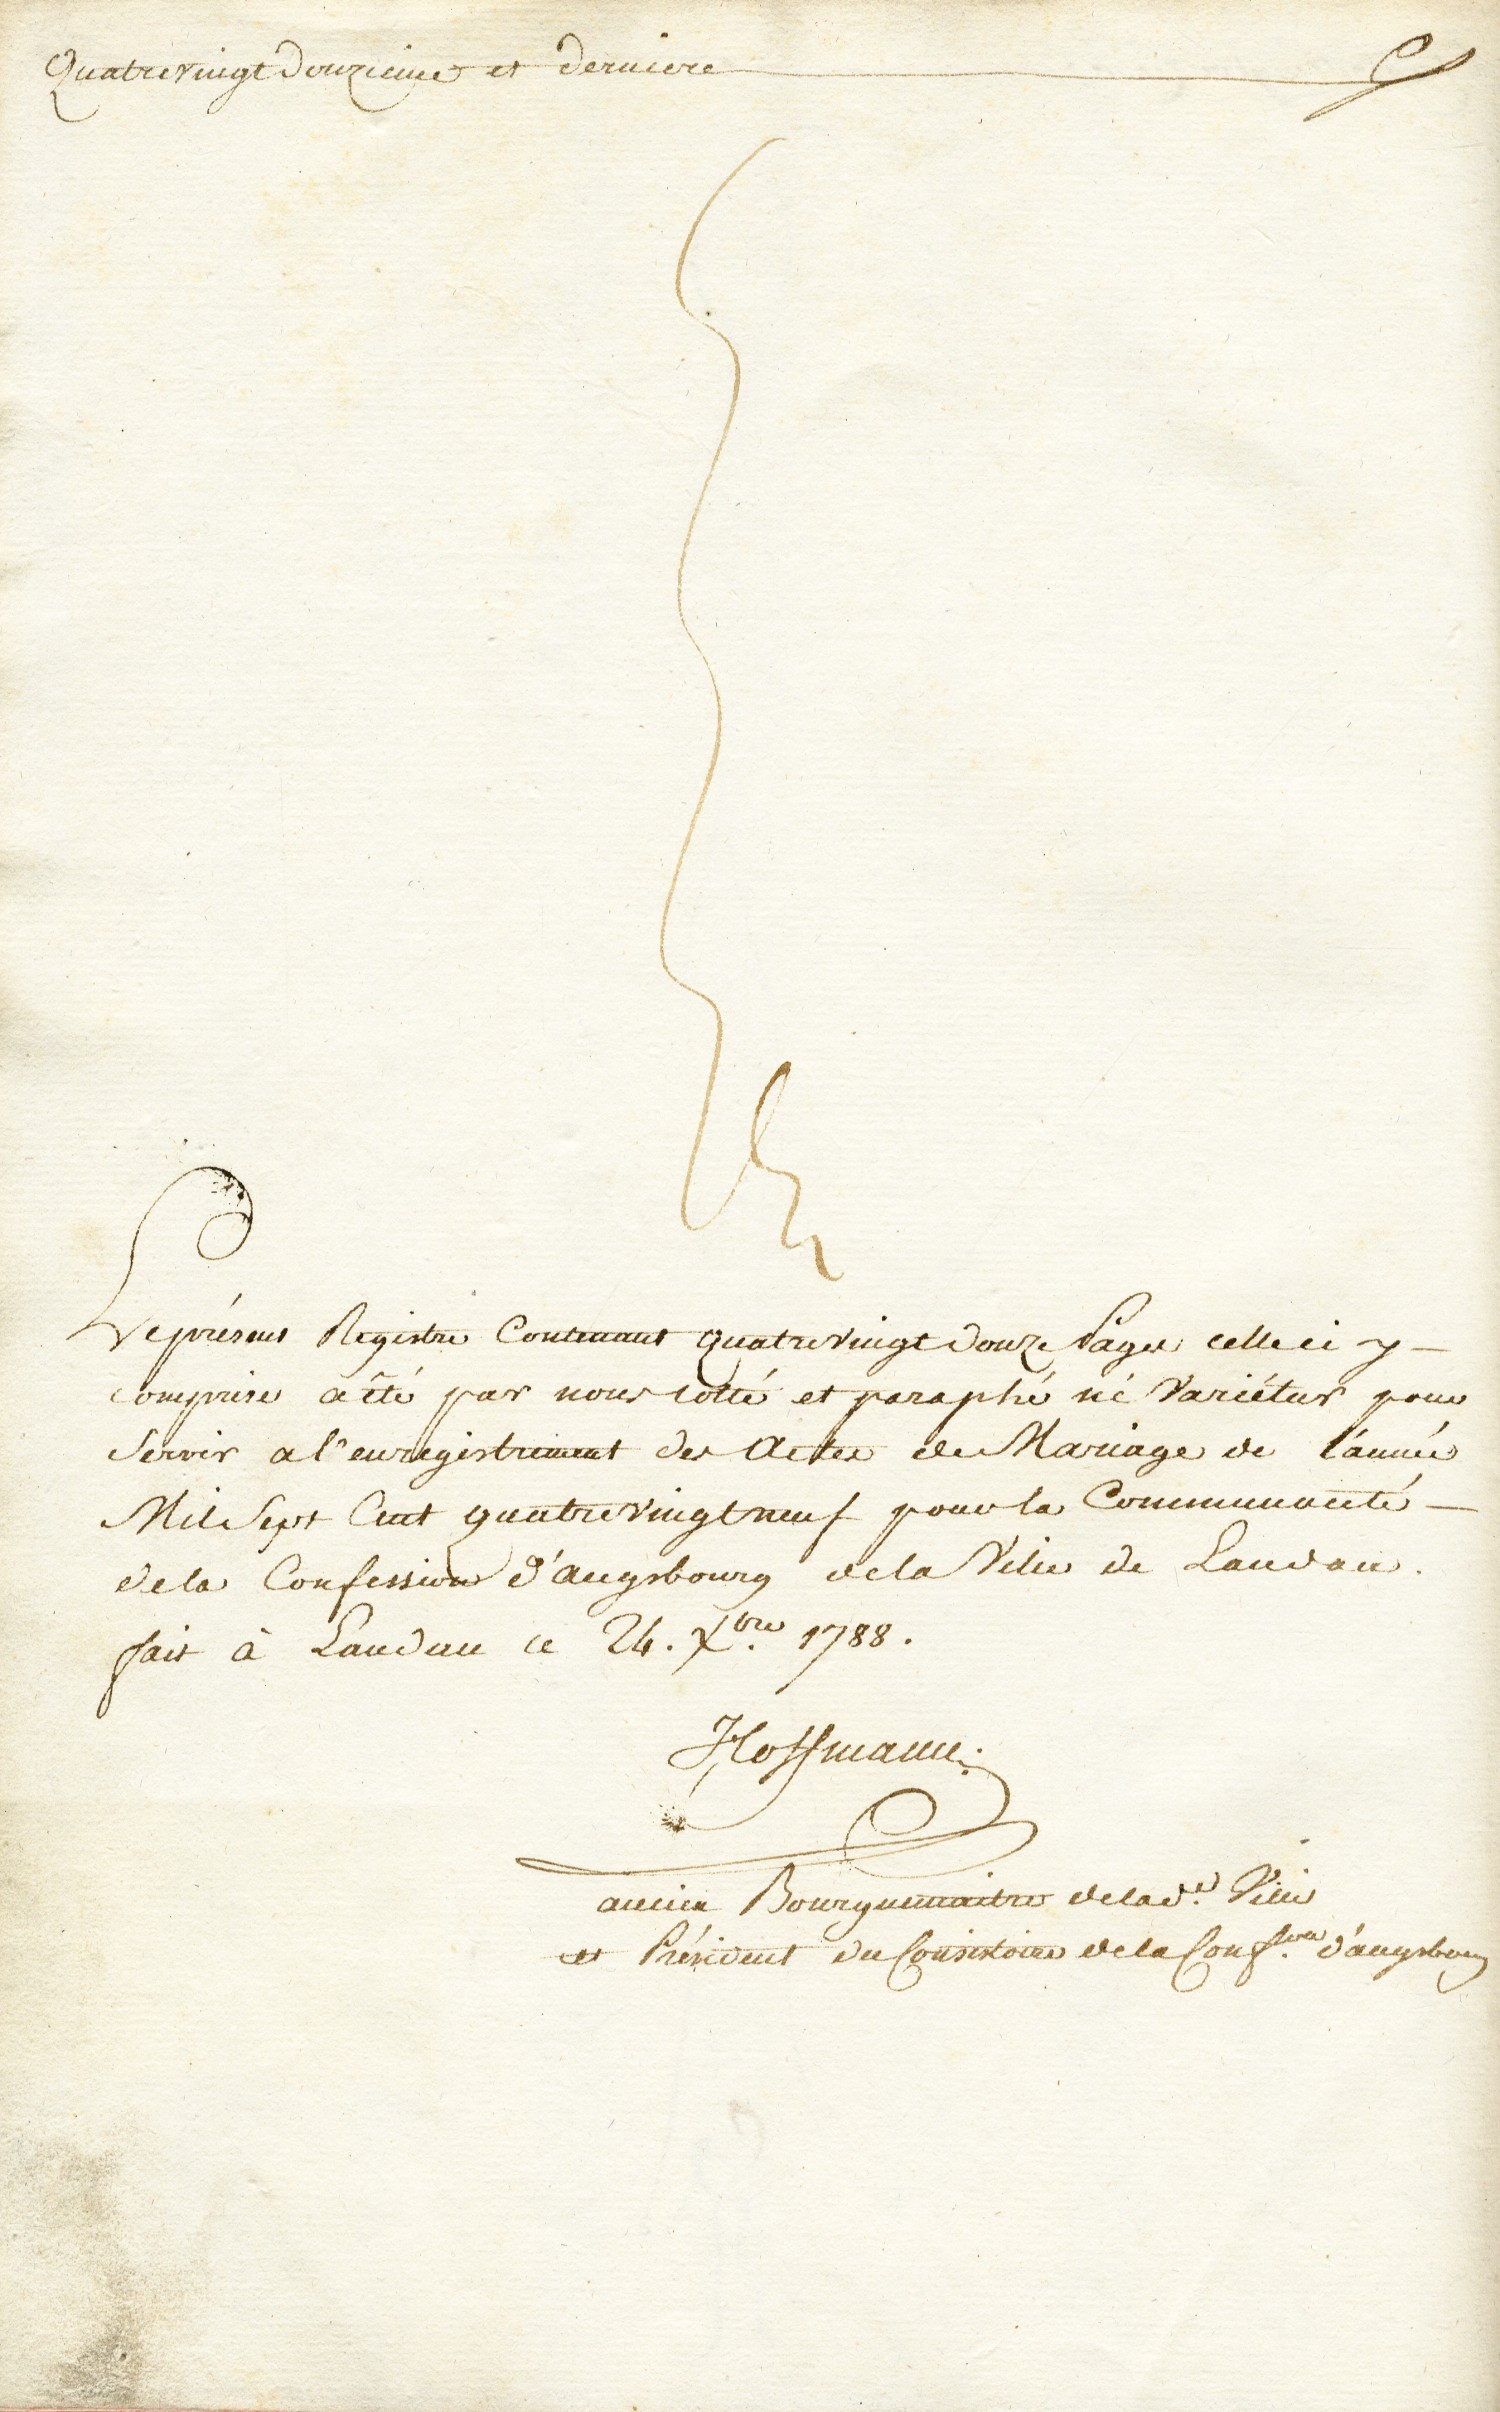 Quatrevingt Douzieme et derniere
Le présent Registre Contenant quatrevingt douze Pages celle ci y
comprise a été par nous cotté et paraphé né Variétur pour
Servir a l'enregistrement des Actes de Mariage de l'année
Mil Sept Cent quatrevingt neuf pour la Communauté
de la Confession d'augsbourg de la Ville de Landau.
fait à Landau ce 24. Xbre 1788.
Hoffmann.
ancien Bourguemaitre de la de. Ville
et Président du Consistoire de la Confson. d'augsbourg